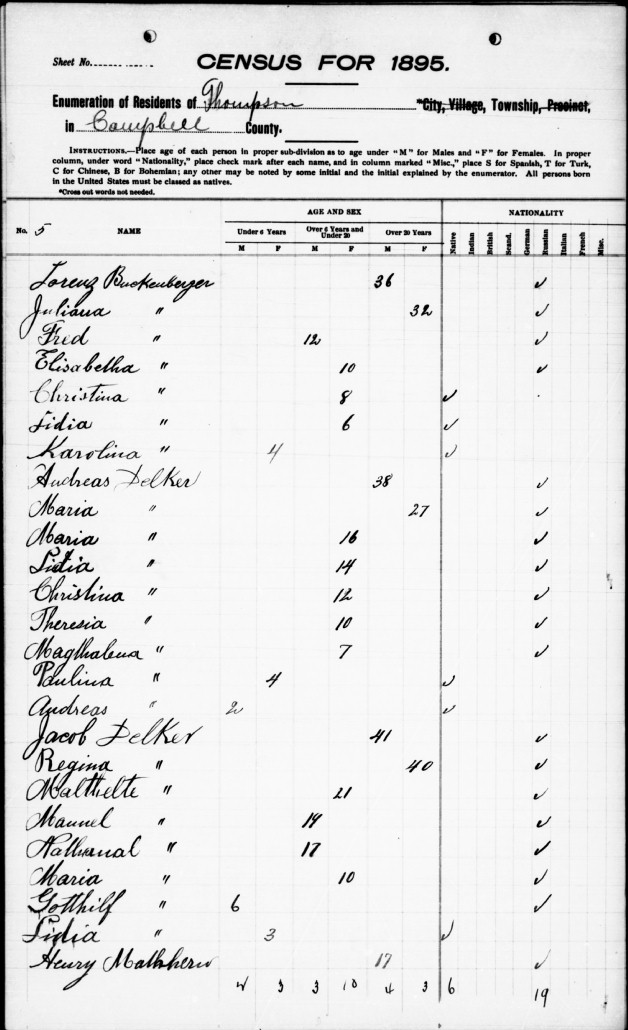 Sheet No.
CENSUS FOR 1895.
Enumeration of Residents of Thompson *City, Village, Township, Precinct,
in Campbell County.
INSTRUCTIONS.—Place age of each person in proper sub-division as to age under "M" for Males and "F" for Females. In proper
column, under word "Nationality," place check mark after each name, and in column marked "Misc.," place S for Spanish, T for Turk,
C for Chinese, B for Bohemian; any other may be noted by some initial and the initial explained by the enumerator. All persons born
in the United States must be classed as natives.
*Cross out words not needed.
AGE AND SEX NATIONALITY
No. 5 NAME Under 6 Years Over 6 Years and Under 20 Over 20 Years
M F M F M F Native Indian British Scand. German Russian Italian French Misc.
Lorenz Buckenberger 36 ✓
Juliana " 32 ✓
Fred " 12 ✓
Elisabetha " 10 ✓
Christina " 8 ✓
Lidia " 6 ✓
Karolina " 4 ✓
Andreas Delker 38 ✓
Maria " 27 ✓
Maria " 16 ✓
Lidia " 14 ✓
Christina " 12 ✓
Theresia " 10 ✓
Magthalena " 7 ✓
Paulina " 4 ✓
Andreas " 2 ✓
Jacob Delker 41 ✓
Regina " 40 ✓
" 21 ✓
Manuel " 19 ✓
Nathanal " 17 ✓
Maria " 10 ✓
Gotthilf " 6 ✓
Lidia " 3 ✓
Henry 17 ✓
3 3 10 4 3 6 19